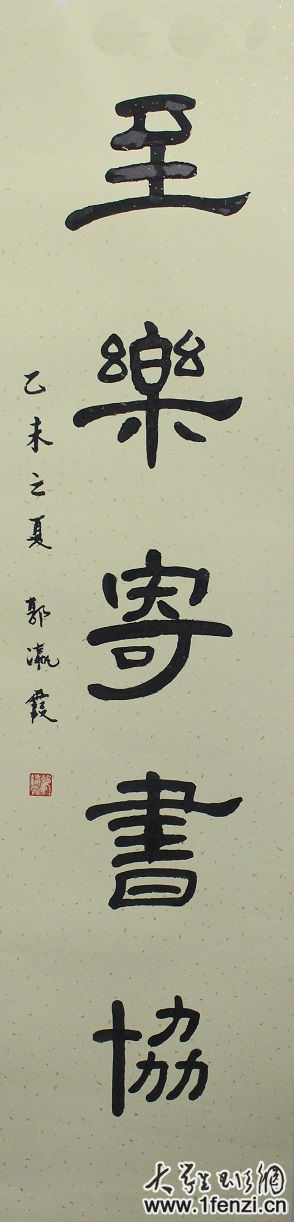 至樂寄書協
乙未之夏 郭瀛霞
大学生财经网
www.1fenzi.cn